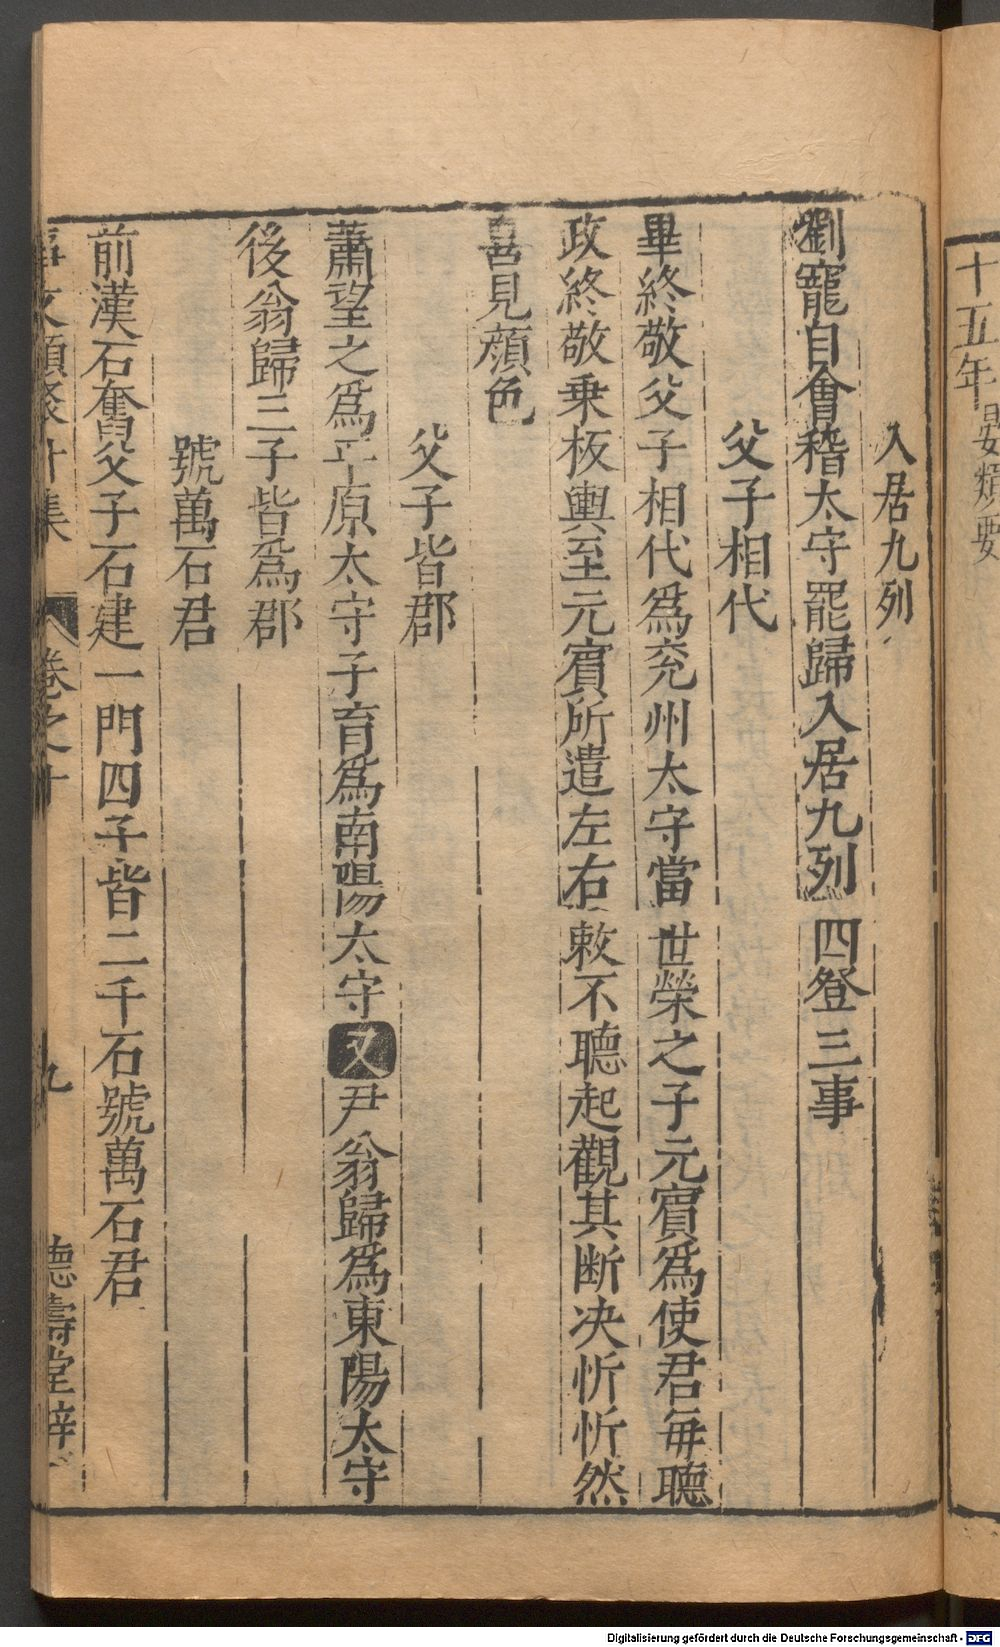 十五年晏類要
入居九列
劉寵自會稽太守罷歸入居九列四登三事
父子相代
畢終敬父子相代爲兖州太守當世榮之子元賔爲使君每聽
政終敬乗板輿至元賔所遣左右敕不聽起觀其断决忻忻然
喜見顔色
父子皆郡
蕭望之爲平原太守子育爲南陽太守又尹翁歸爲東陽太守
後翁歸三子皆爲郡
號萬石君
前漢石奮父子石建一門四子皆二千石號萬石君
事文類聚 集 卷之十 九 德壽堂梓
Digitalisierung gefördert durch die Deutsche Forschungsgemeinschaft - DFG